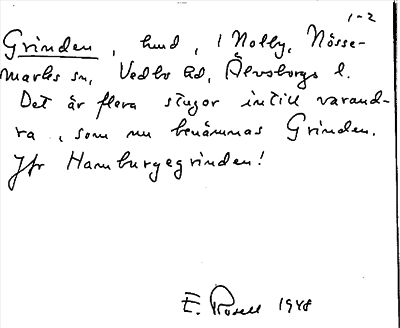 1-2
Grinden, hmd, i Nolby, Nösse-
marks sn, Vedbo hd, Älvsborgs l.
Det är flera stugor intill varand-
ra, som nu benämnas Grinden.
Jfr Hamburgegrinden!
E. Rosell 1948